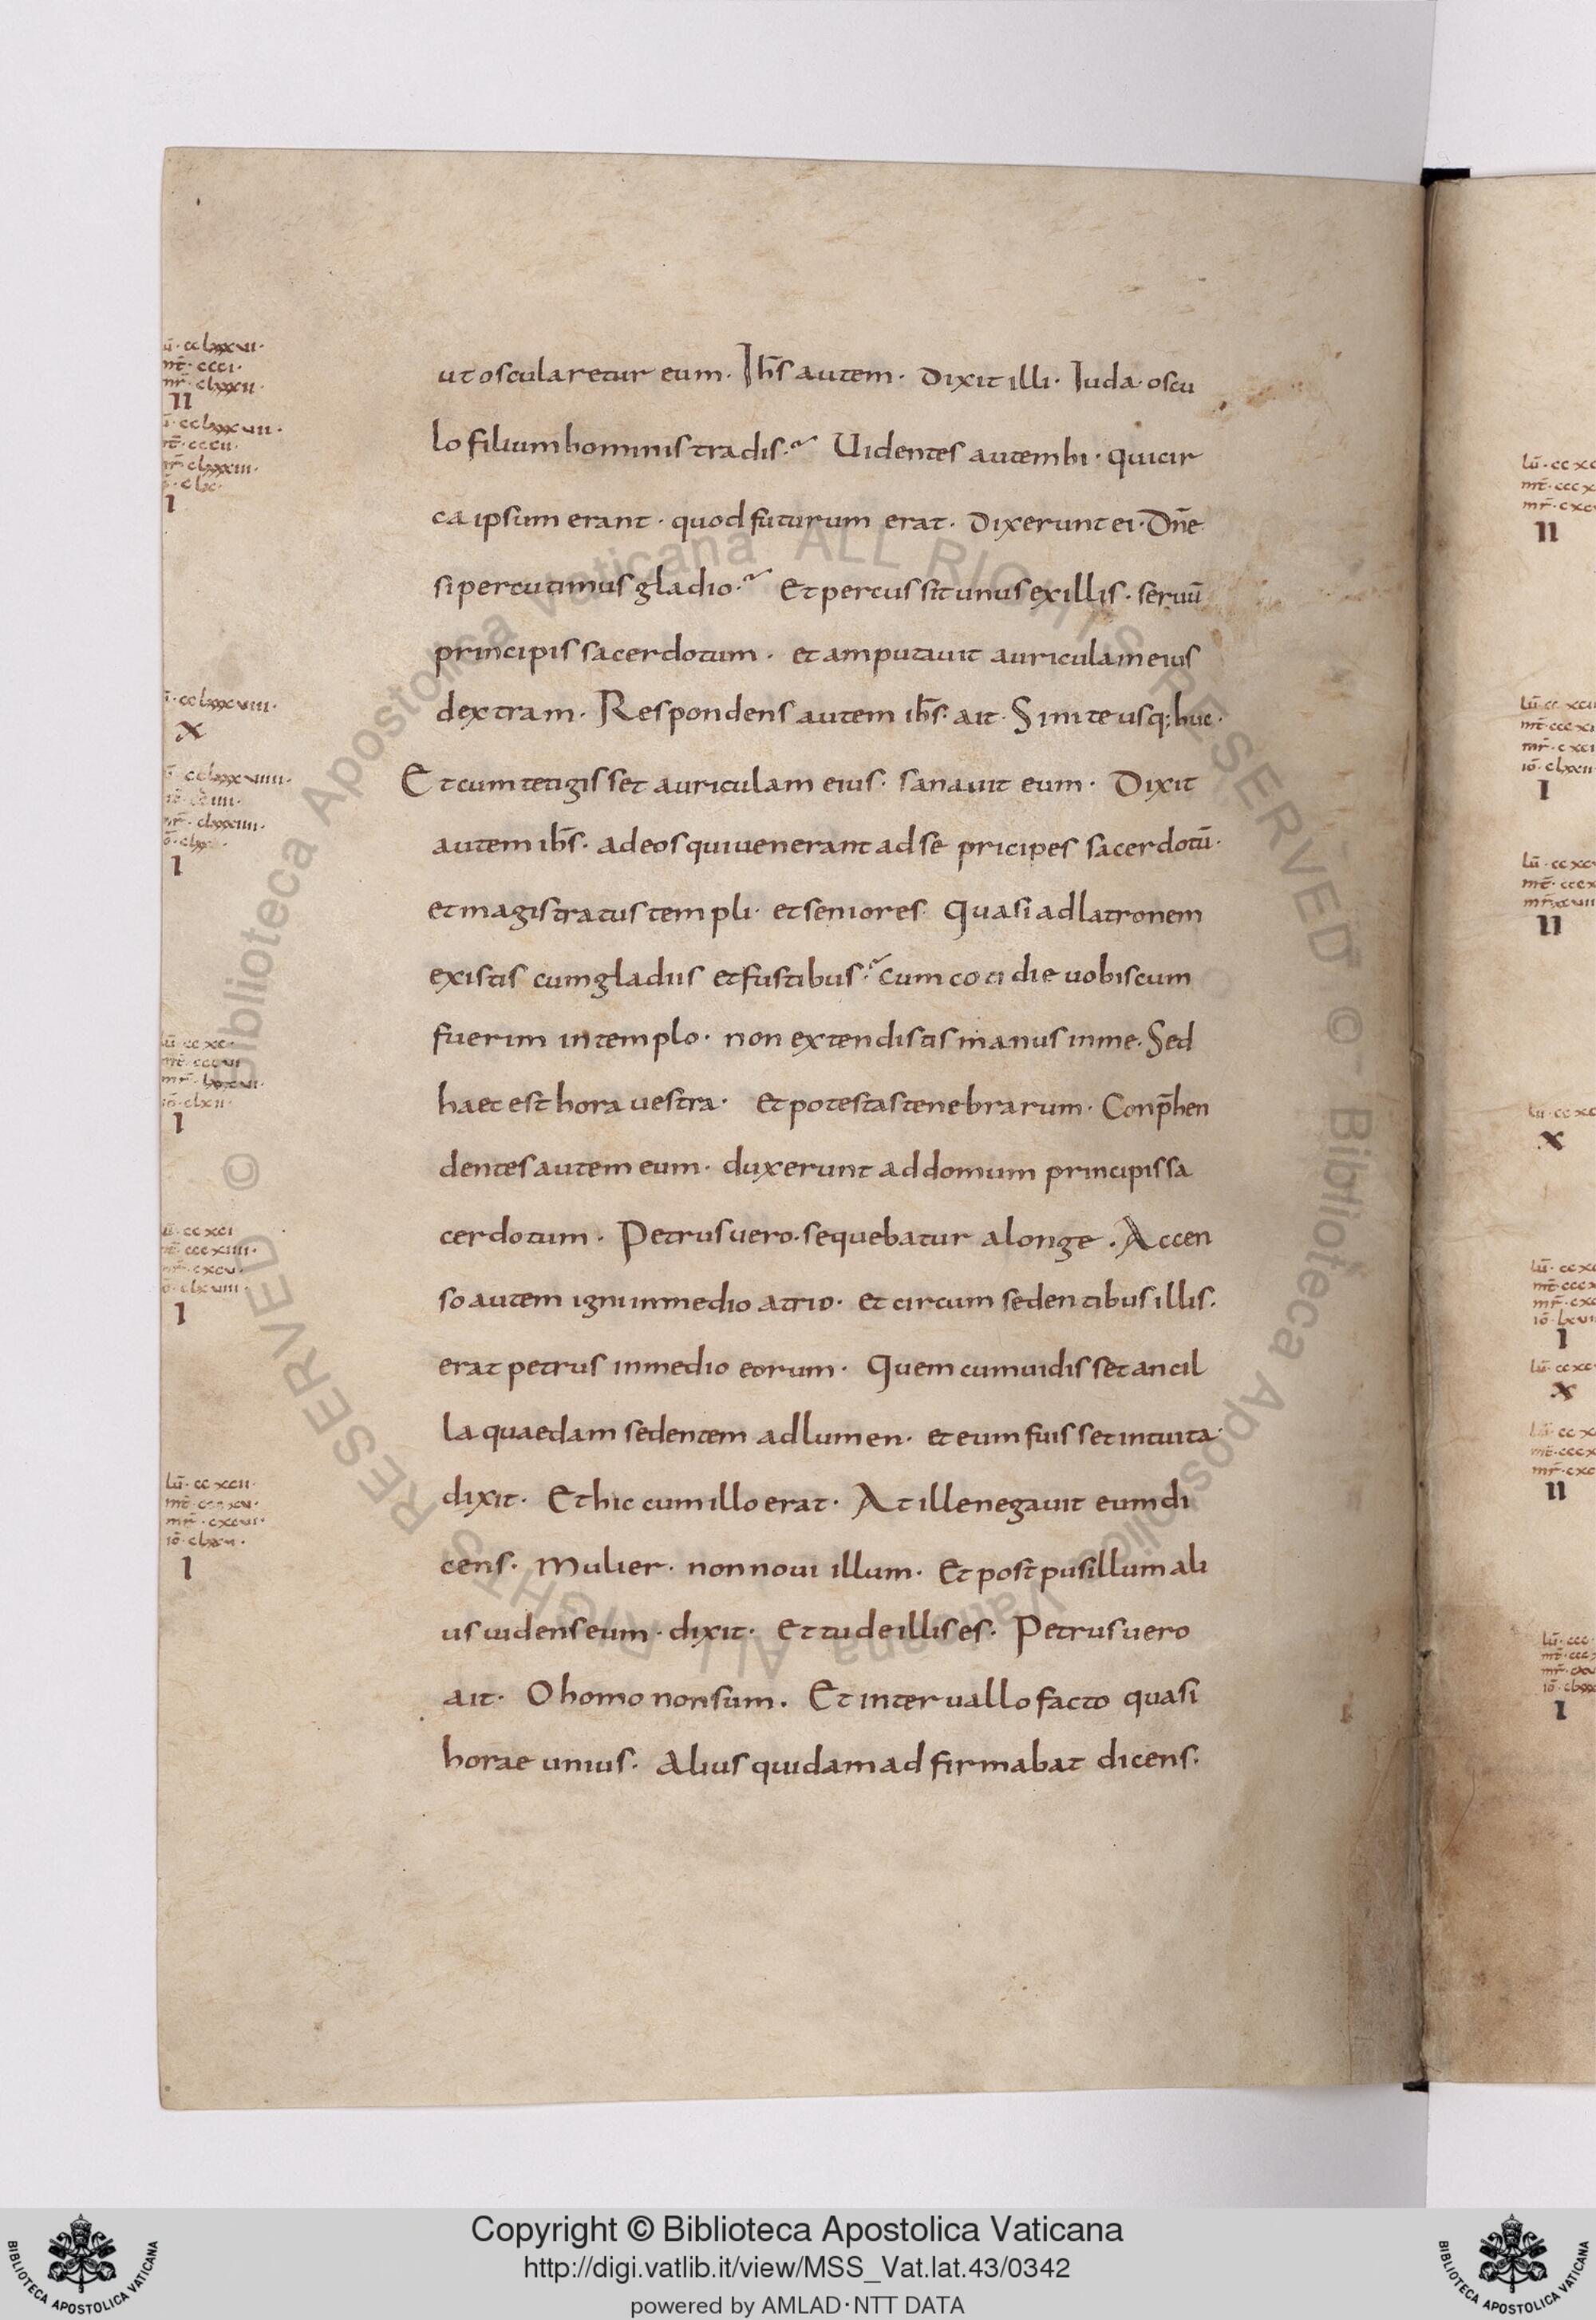 ut oscularetur eum· Ih̅s autem· dixit illi· Iuda· oscu
lo filium hominis tradis· Uidentes autem hi· qui cir
ca ipsum erant· quod futurum erat· dixerunt ei· Dn̅e
si percutimus gladio· Et percussit unus ex illis· seruū
principis sacerdotum· et amputauit auriculam eius
dextram· Respondens autem ih̅s· ait· Sinite usq; huc·
Et cum tetigisset auriculam eius· sanauit eum· Dixit
autem ih̅s· ad eos qui uenerant ad se pricipes sacerdotū·
et magistratus templi· et seniores· Quasi ad latronem
existis cum gladiis et fustibus· cum cotidie uobiscum
fuerim in templo· non extendistis manus in me· Sed
haec est hora uestra· et potestas tenebrarum· Conp̄hen
dentes autem eum· duxerunt ad domum principis sa
cerdotum· Petrus uero· sequebatur a longe· Accen
so autem igni in medio atrio· et circum sedentibus illis·
erat petrus in medio eorum· Quem cum uidisset ancil
la quaedam sedentem ad lumen· et eum fuisset intuita·
dixit· Et hic cum illo erat· At ille negauit eum di
cens· Mulier· non noui illum· Et post pusillum ali
us uidens eum· dixit· Et tu de illis es· Petrus uero
ait· O homo non sum· Et interuallo facto quasi
horae unius· Alius quidam adfirmabat dicens·
cclxxxvii·
mt̅· ccci·
mr̅· clxxxii·
II
cclxxxvii·
cccii·
clxxxiii·
I
cclxxxviii·
X
cclxxxviiii·
mr̅· clxxxiiii·
I
lū· ccxc·
iō· clxii·
I
ccxci
cccxiiii·
cxcv·
clxviii·
I
lū· ccxcii·
mr̅· cxcvi·
I
II
I
II
X
I
X
II
I
© Biblioteca Apostolica Vaticana ALL RIGHTS RESERVED
© Biblioteca Apostolica Vaticana ALL RIGHTS RESERVED
BIBLIOTECA APOSTOLICA VATICANA
Copyright © Biblioteca Apostolica Vaticana
http://digi.vatlib.it/view/MSS_Vat.lat.43/0342
powered by AMLAD·NTT DATA
BIBLIOTECA APOSTOLICA VATICANA